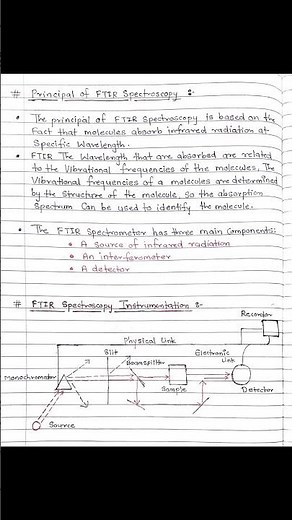 # Principal of FTIR Spectroscopy :-
• The principal of FTIR Spectroscopy is based on the
Fact that molecules absorb infrared radiation at
Specific Wavelength.
• FTIR The Wavelength that are absorbed are related
to the Vibrational frequencies of the molecules. The
Vibrational frequencies of a molecules are determined
by the structure of the molecule. So the absorption
Spectrum Can be used to identify the molecule.
• The FTIR Spectrometer has three main Components:
• A Source of infrared radiation
• An interferometer
• A detector
# FTIR Spectroscopy Instrumentation :-
Recorder
Physical Link
Slit
Beamsplitter
Electronic
Link
Monochromator
Sample
Detector
Source